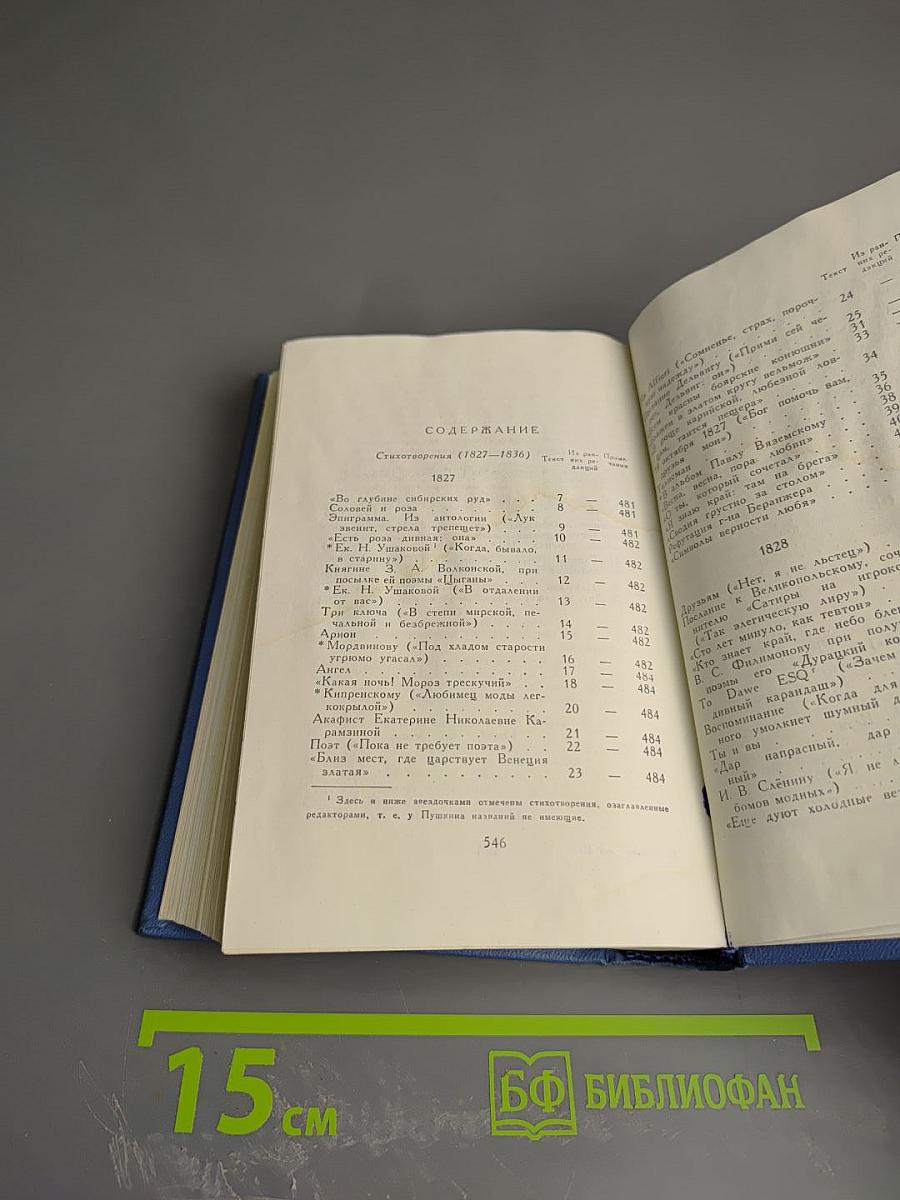 СОДЕРЖАНИЕ
Стихотворения (1827—1836) Текст Из ран- них ре- дакций Приме- чания
1827
«Во глубине сибирских руд» . . . 7 — 481
Соловей и роза . . . . . . . . 8 — 481
Эпиграмма. Из антологии («Лук
звенит, стрела трепещет») . . . 9 — 481
«Есть роза дивная: она» . . . . 10 — 482
* Ек. Н. Ушаковой ¹ («Когда, бывало,
в старину») . . . . . . . . . 11 — 482
Княгине З. А. Волконской, при
посылке ей поэмы «Цыганы» . . . 12 — 482
* Ек. Н. Ушаковой («В отдалении
от вас») . . . . . . . . . . 13 — 482
Три ключа («В степи мирской, пе-
чальной и безбрежной») . . . . 14 — 482
Арион . . . . . . . . . . . 15 — 482
* Мордвинову («Под хладом старости
угрюмо угасал») . . . . . . . 16 — 482
Ангел . . . . . . . . . . . 17 — 484
«Какая ночь! Мороз трескучий» . . 18 — 484
* Кипренскому («Любимец моды лег-
кокрылой») . . . . . . . . . 20 — 484
Акафист Екатерине Николаевне Ка-
рамзиной . . . . . . . . . . 21 — 484
Поэт («Пока не требует поэта») . . 22 — 484
«Близ мест, где царствует Венеция
златая» . . . . . . . . . . 23 — 484
¹ Здесь и ниже звездочками отмечены стихотворения, озаглавленные
редакторами, т. е. у Пушкина названий не имеющие.
546
Текст Из ран- них ре- дакций
Alfieri («Сомненье, страх, пороч-
надежду») . . . 24 —
Дельвигу («Прими сей че-
он») . . . 25 —
красны боярские конюшни» 31 —
в златом кругу вельмож» 33
роще карийской, любезной лов-
таится пещера» . . . 34
октября 1827 («Бог помочь вам,
друзья мои») . . . 35
Талисман . . . 36
альбом Павлу Вяземскому 38
весна, пора любви» 39
ты, который сочетал»
знаю край: там на брега»
грустно за столом»
Рефутация г-на Беранжера
«Символы верности любя»
1828
Друзьям («Нет, я не льстец»)
Послание к Великопольскому, соч
нителю «Сатиры на игроко
(«Так элегическую лиру»)
«Сто лет минуло, как тевтон»
«Кто знает край, где небо блеш
В. С. Филимонову при полу
поэмы его «Дурацкий ко
To Dawe ESQʳ («Зачем
дивный карандаш»)
Воспоминание («Когда для
ного умолкнет шумный д
Ты и вы
«Дар напрасный, дар
ный»
И. В. Слёнину («Я не л
бомов модных»)
«Еще дуют холодные вет
15 см
БФ БИБЛИОФАН